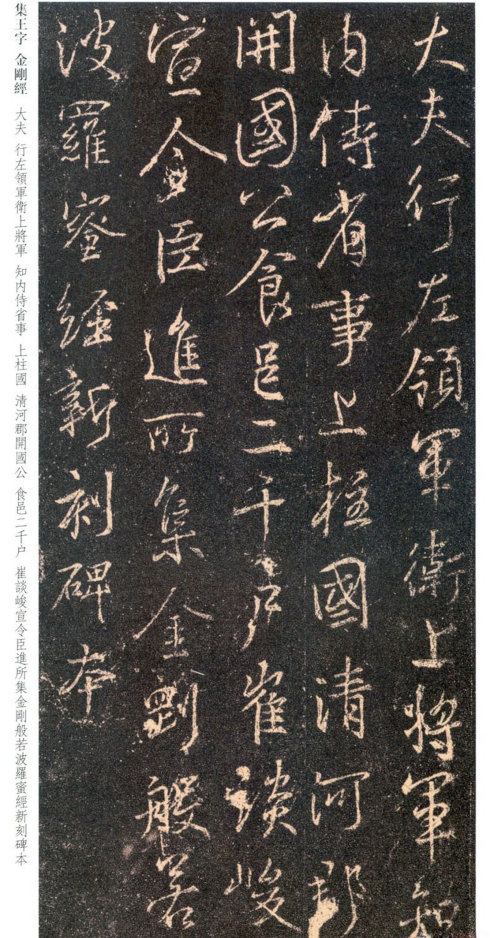 大夫行左領軍衛上將軍知
內侍省事上柱國清河郡
開國公食邑二千戶崔談峻
宣令臣進所集金剛般若
波羅蜜經新刻碑本
集王字 金剛經 大夫 行左領軍衛上將軍 知內侍省事 上柱國 清河郡開國公 食邑二千户 崔談峻宣令臣進所集金剛般若波羅蜜經新刻碑本